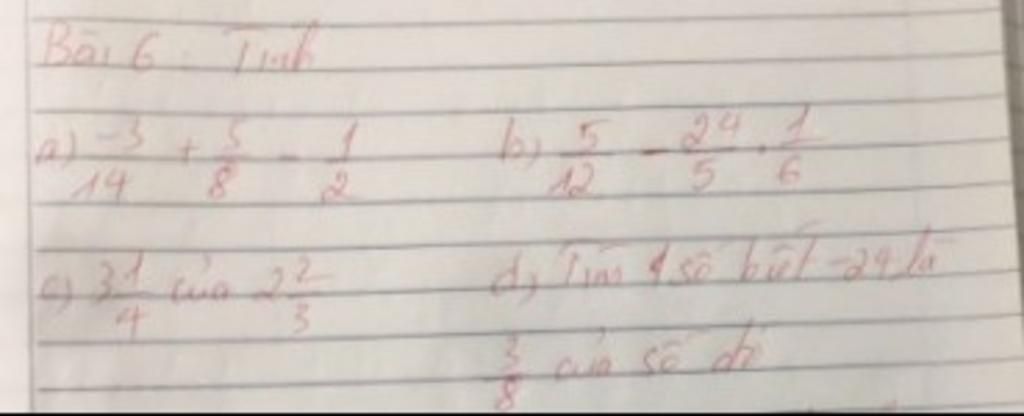 Bài 6 : Tính
a) -3/14 + 5/8 - 1/2 b) 5/12 - 24/5 . 1/6
c) 3 1/4 của 2 2/3 d) Tìm 1 số biết -24 là
3/8 của số đó